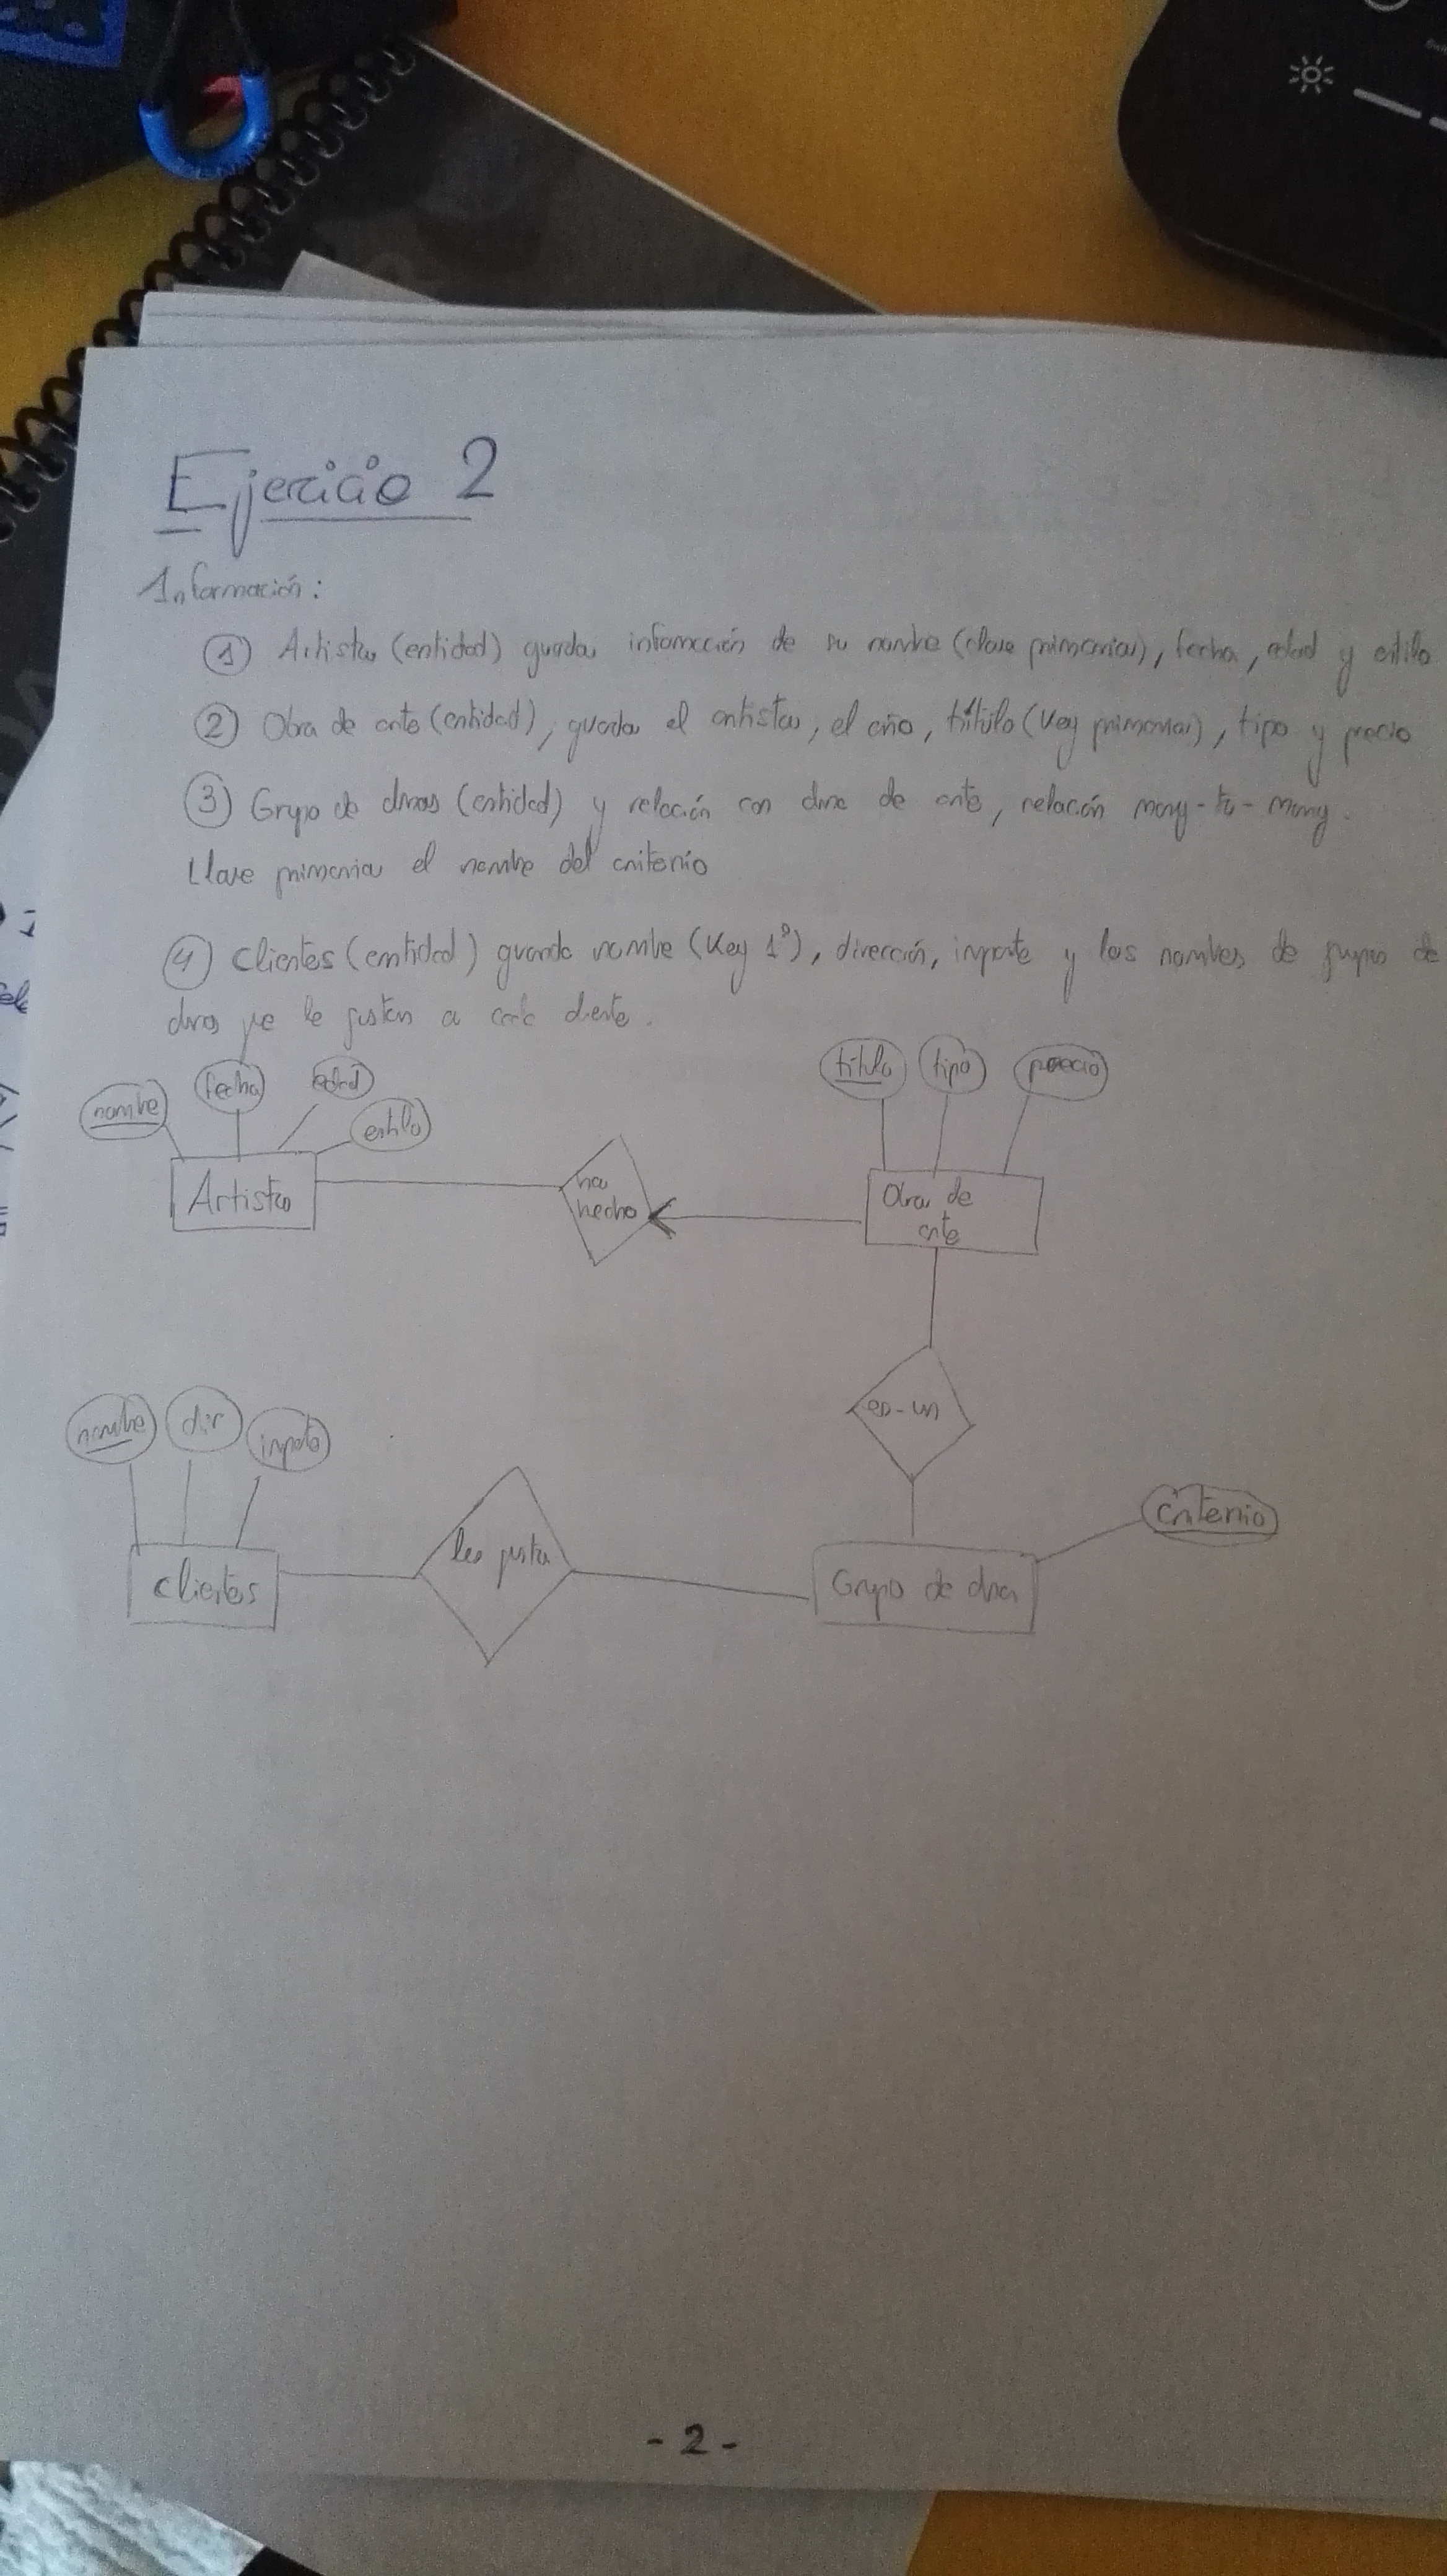 Ejercicio 2
Información:
① Artista (entidad) guarda información de su nombre (clave primaria), fecha, edad y estilo
② Obra de arte (entidad), guarda el artista, el año, título (Key primaria), tipo y precio
③ Grupo de obras (entidad) y relación con obra de arte, relación many-to-many.
Llave primaria el nombre del criterio
④ Clientes (entidad) guarda nombre (Key 1º), dirección, importe y los nombres de grupos de
obras que le gustan a cada cliente.
nombre fecha edad estilo
título tipo precio
Artista
ha
hecho
Obra de
arte
es-un
nombre dir importe
criterio
Clientes
les gusta
Grupo de obras
- 2 -